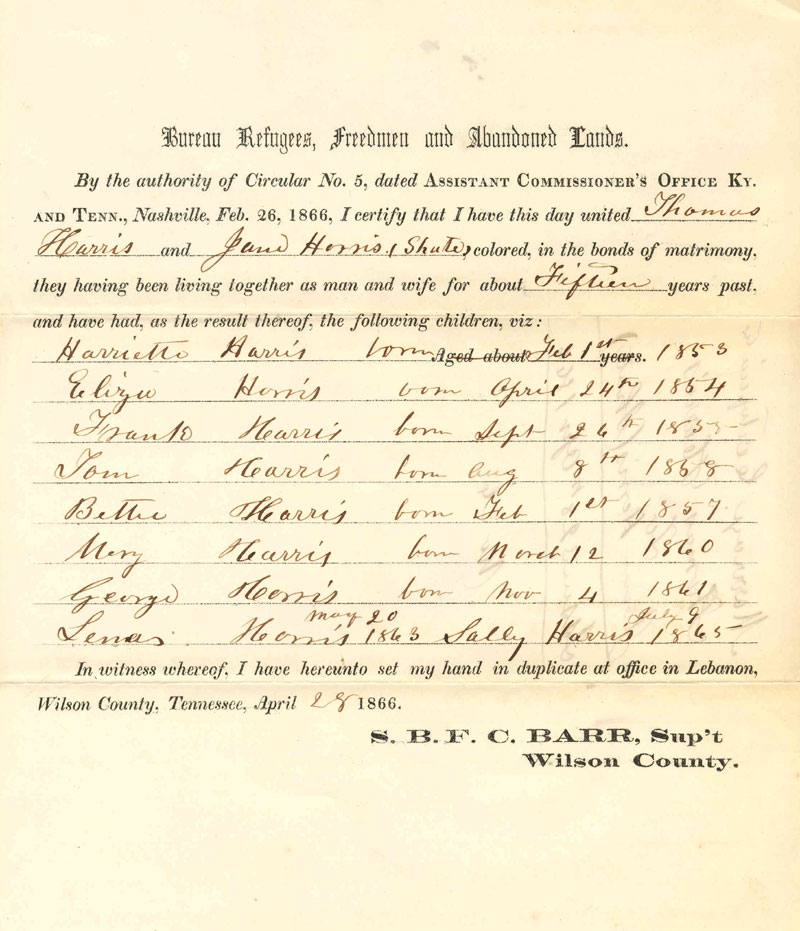 Bureau Refugees, Freedmen and Abandoned Lands.
By the authority of Circular No. 5, dated ASSISTANT COMMISSIONER'S OFFICE KY.
AND TENN., Nashville, Feb. 26, 1866, I certify that I have this day united Thomas
Harris and Jane Harris (Shute) colored, in the bonds of matrimony,
they having been living together as man and wife for about Fifteen years past,
and have had, as the result thereof, the following children, viz:
Harriette Harris born Aged about Feb 1st years. 1853
Eliza Harris born April 24th 1854
Frank Harris born Sept 26th 1855
Tom Harris born Aug 8th 1858
Bettie Harris born Feb 1st 1857
Mary Harris born March 12 1860
George Harris born Nov 4 1861
May 20 July 9
Harris 1863 Sally Harris 1865
In witness whereof, I have hereunto set my hand in duplicate at office in Lebanon,
Wilson County, Tennessee, April 28 1866.
S. B. F. C. BARR, Sup't
Wilson County.